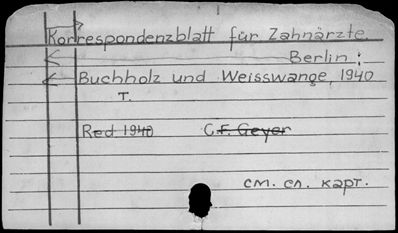 Korrespondenzblatt für Zahnärzte.
Berlin:
Buchholz und Weisswange, 1940
T.
Red. 1940 C.F. Geyer
см. сл. карт.